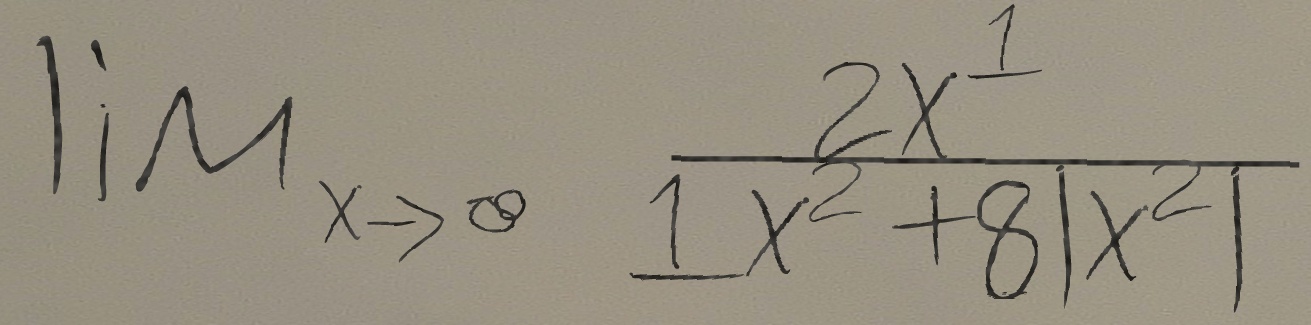 lim x→∞ 2x^1 / (1x^2 + 8|x^2|)